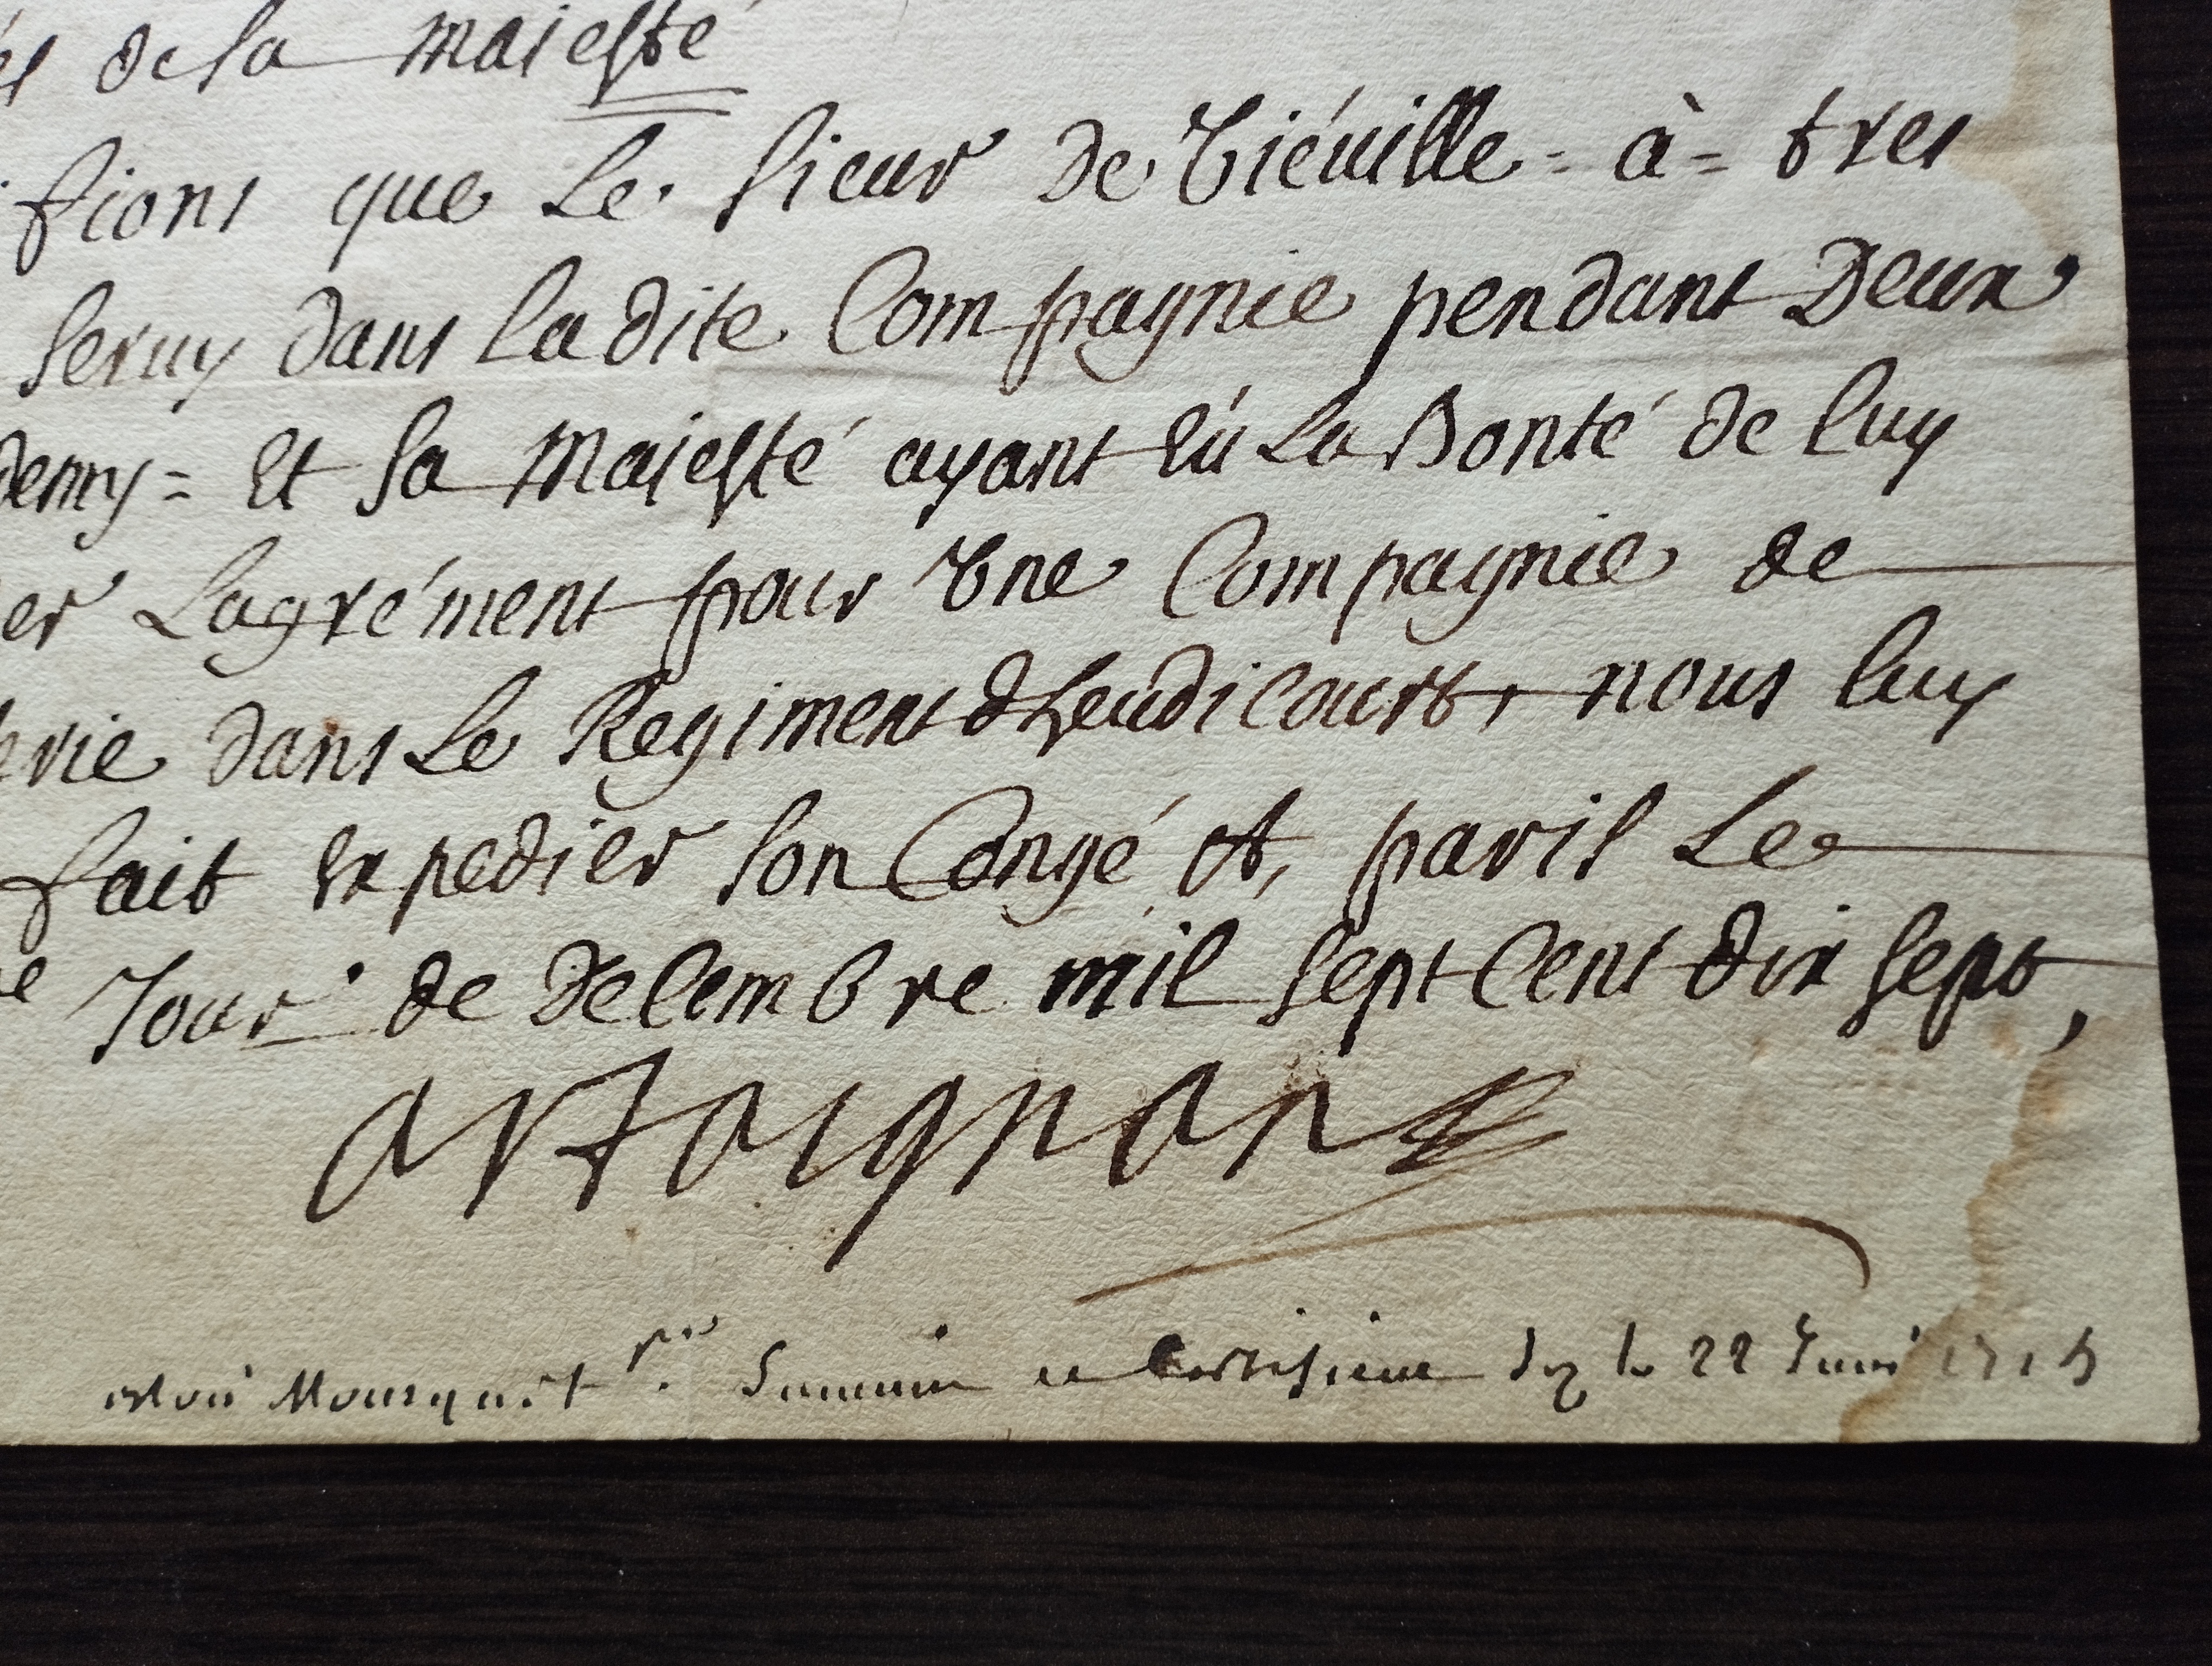 de sa maiesté
fions que Le sieur de Tiéuille = à = tres
seruy dans ladite Compagnie pendant Deux
demy = Et sa Maiesté ayant Eü La Bonté de luy
er Lagrément pour Vne Compagnie de
erie dans Le Regiment dheudicourt, nous luy
fait Expedier son Congé A, paris Le
e Jour de Decembre mil sept Cent dix sept,
artaignan
le 22